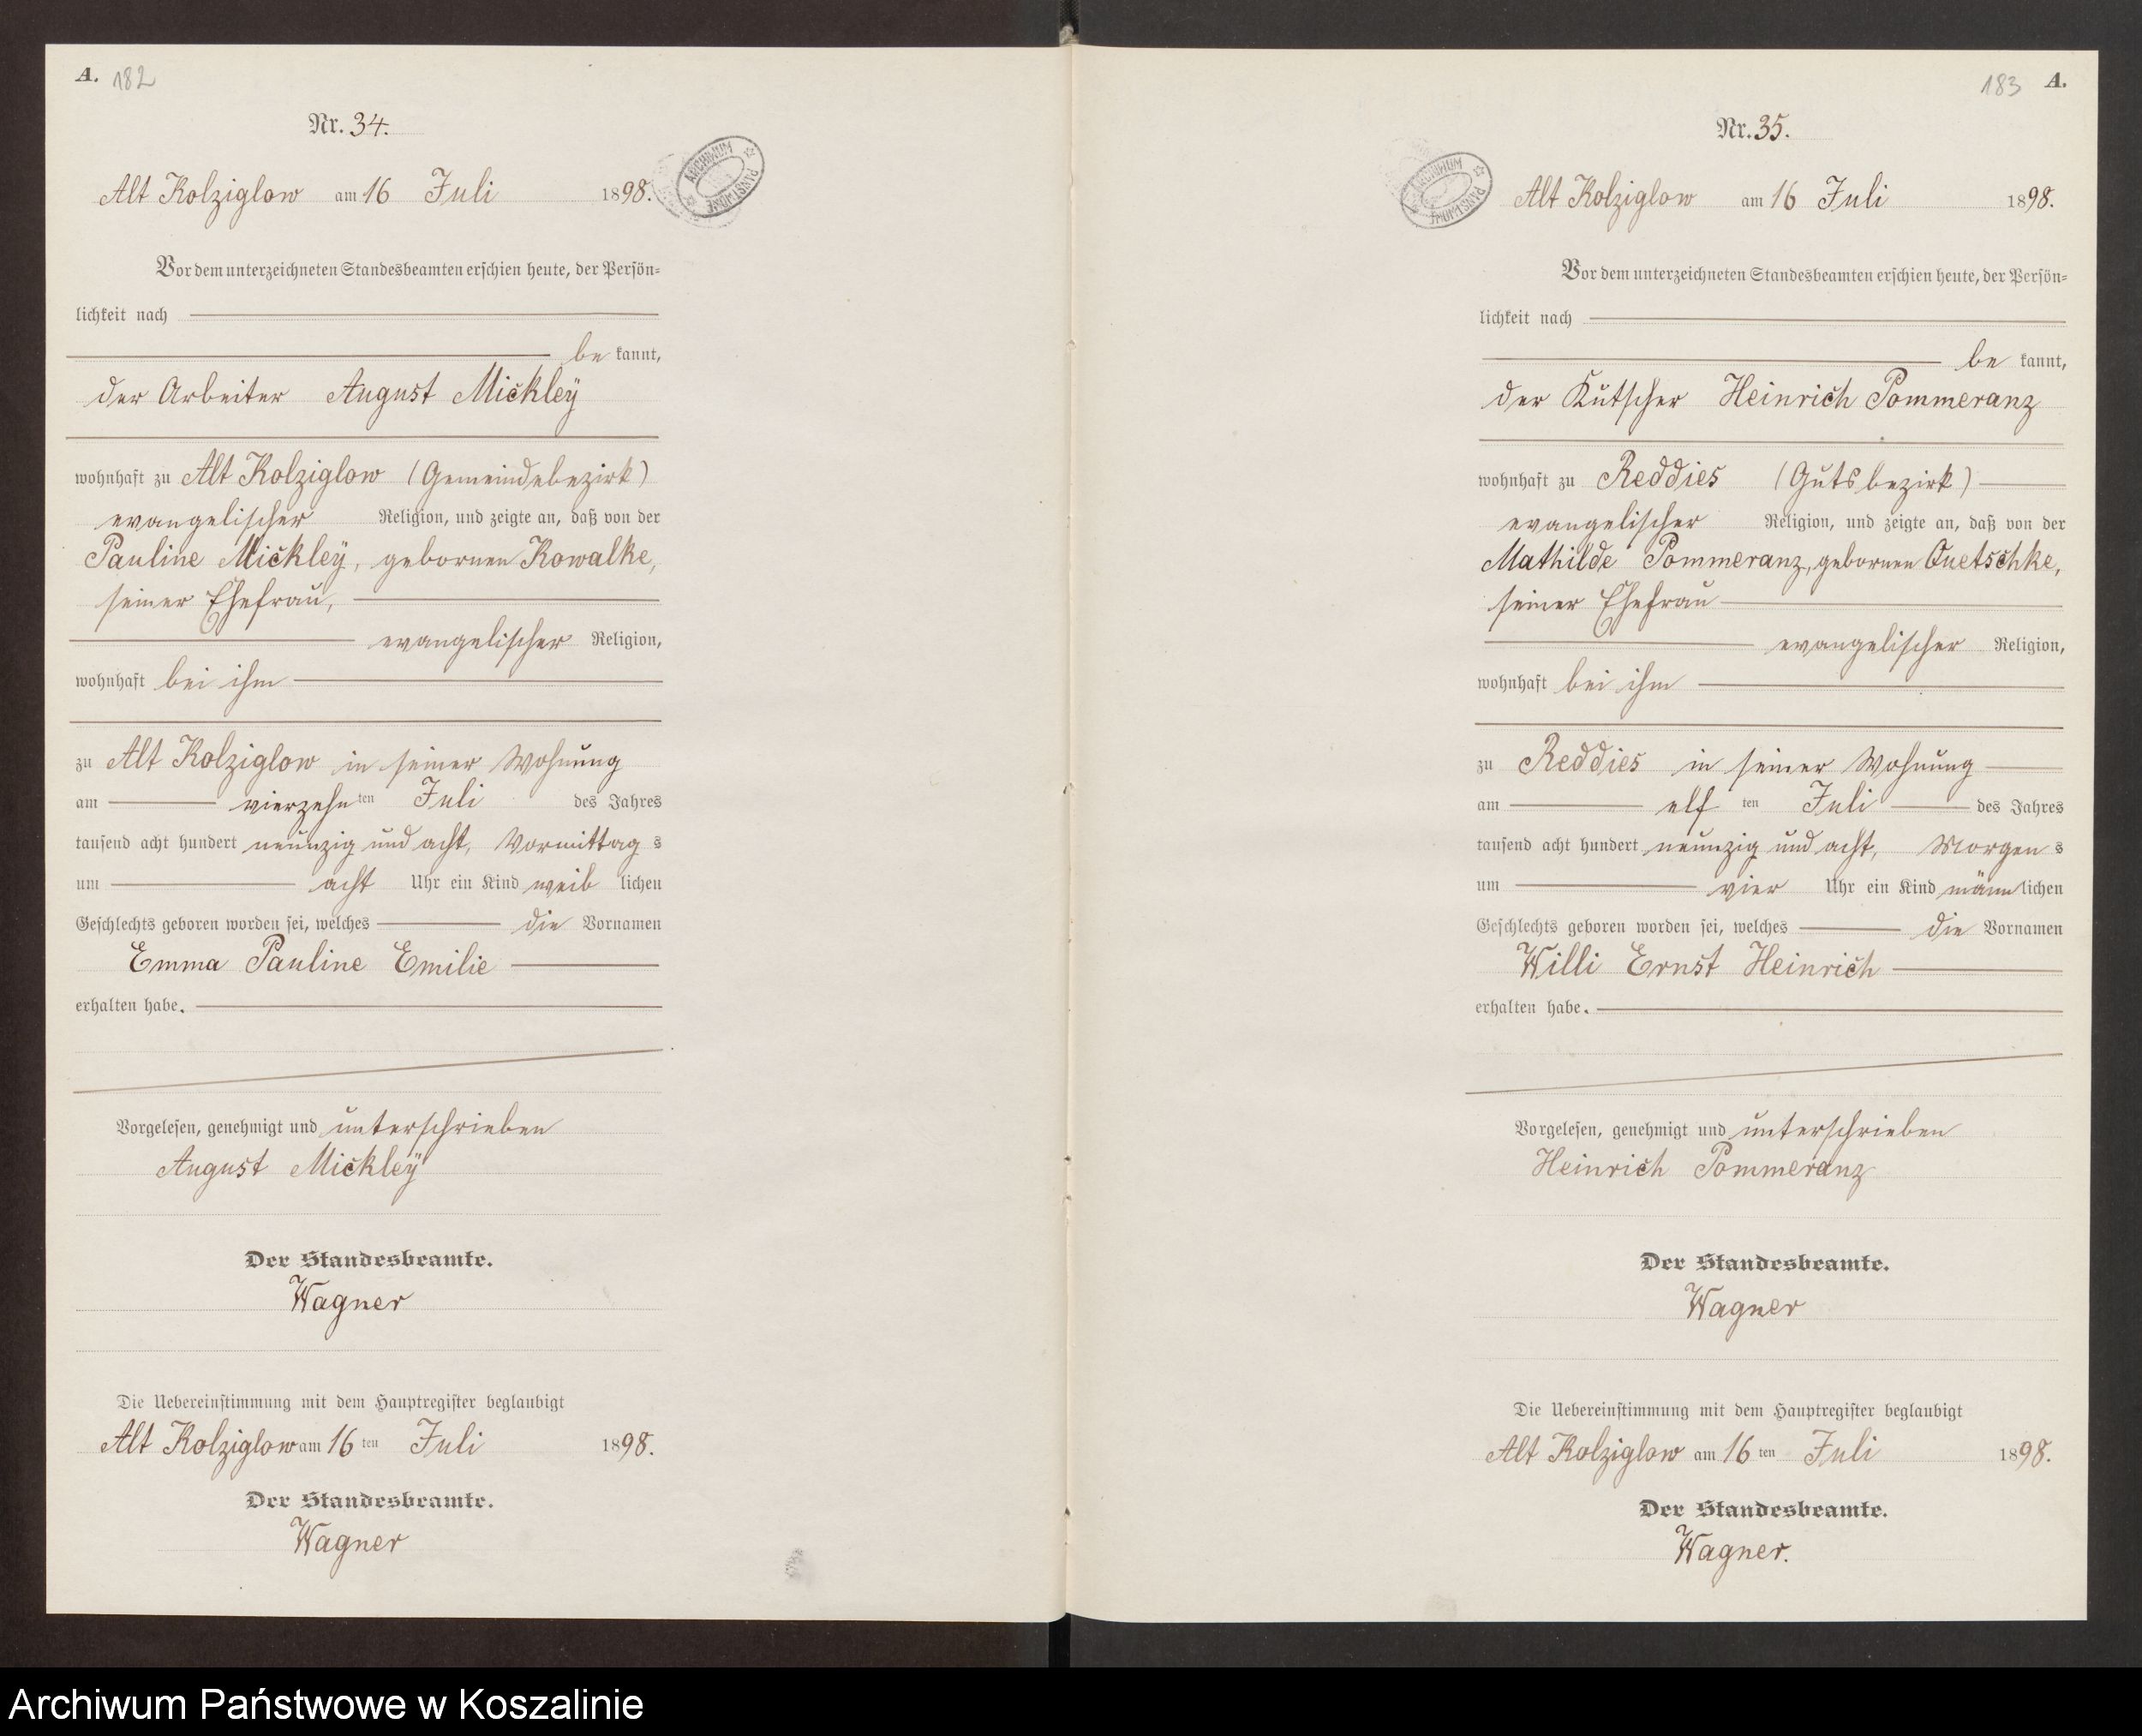 A. 182
Nr. 34.
Alt Kolziglow am 16 Juli 1898.
ARCHIWUM PAŃSTWOWE
Vor dem unterzeichneten Standesbeamten erschien heute, der Persön=
lichkeit nach
be kannt,
der Arbeiter August Mickley
wohnhaft zu Alt Kolziglow (Gemeindebezirk)
evangelischer Religion, und zeigte an, daß von der
Pauline Mickley, gebornen Kowalke,
seiner Ehefrau,
evangelischer Religion,
wohnhaft bei ihm
zu Alt Kolziglow in seiner Wohnung
am vierzehn ten Juli des Jahres
tausend acht hundert neunzig und acht, Vormittag s
um acht Uhr ein Kind weib lichen
Geschlechts geboren worden sei, welches die Vornamen
Emma Pauline Emilie
erhalten habe.
Vorgelesen, genehmigt und unterschrieben
August Mickley
Der Standesbeamte.
Wagner
Die Uebereinstimmung mit dem Hauptregister beglaubigt
Alt Kolziglow am 16 ten Juli 1898.
Der Standesbeamte.
Wagner
183 A.
Nr. 35.
ARCHIWUM PAŃSTWOWE
Alt Kolziglow am 16 Juli 1898.
Vor dem unterzeichneten Standesbeamten erschien heute, der Persön=
lichkeit nach
be kannt,
der Kutscher Heinrich Pommeranz
wohnhaft zu Reddies (Gutsbezirk)
evangelischer Religion, und zeigte an, daß von der
Mathilde Pommeranz, gebornen Quetschke,
seiner Ehefrau
evangelischer Religion,
wohnhaft bei ihm
zu Reddies in seiner Wohnung
am elf ten Juli des Jahres
tausend acht hundert neunzig und acht, Morgen s
um vier Uhr ein Kind männ lichen
Geschlechts geboren worden sei, welches die Vornamen
Willi Ernst Heinrich
erhalten habe.
Vorgelesen, genehmigt und unterschrieben
Heinrich Pommeranz
Der Standesbeamte.
Wagner
Die Uebereinstimmung mit dem Hauptregister beglaubigt
Alt Kolziglow am 16 ten Juli 1898.
Der Standesbeamte.
Wagner.
Archiwum Państwowe w Koszalinie